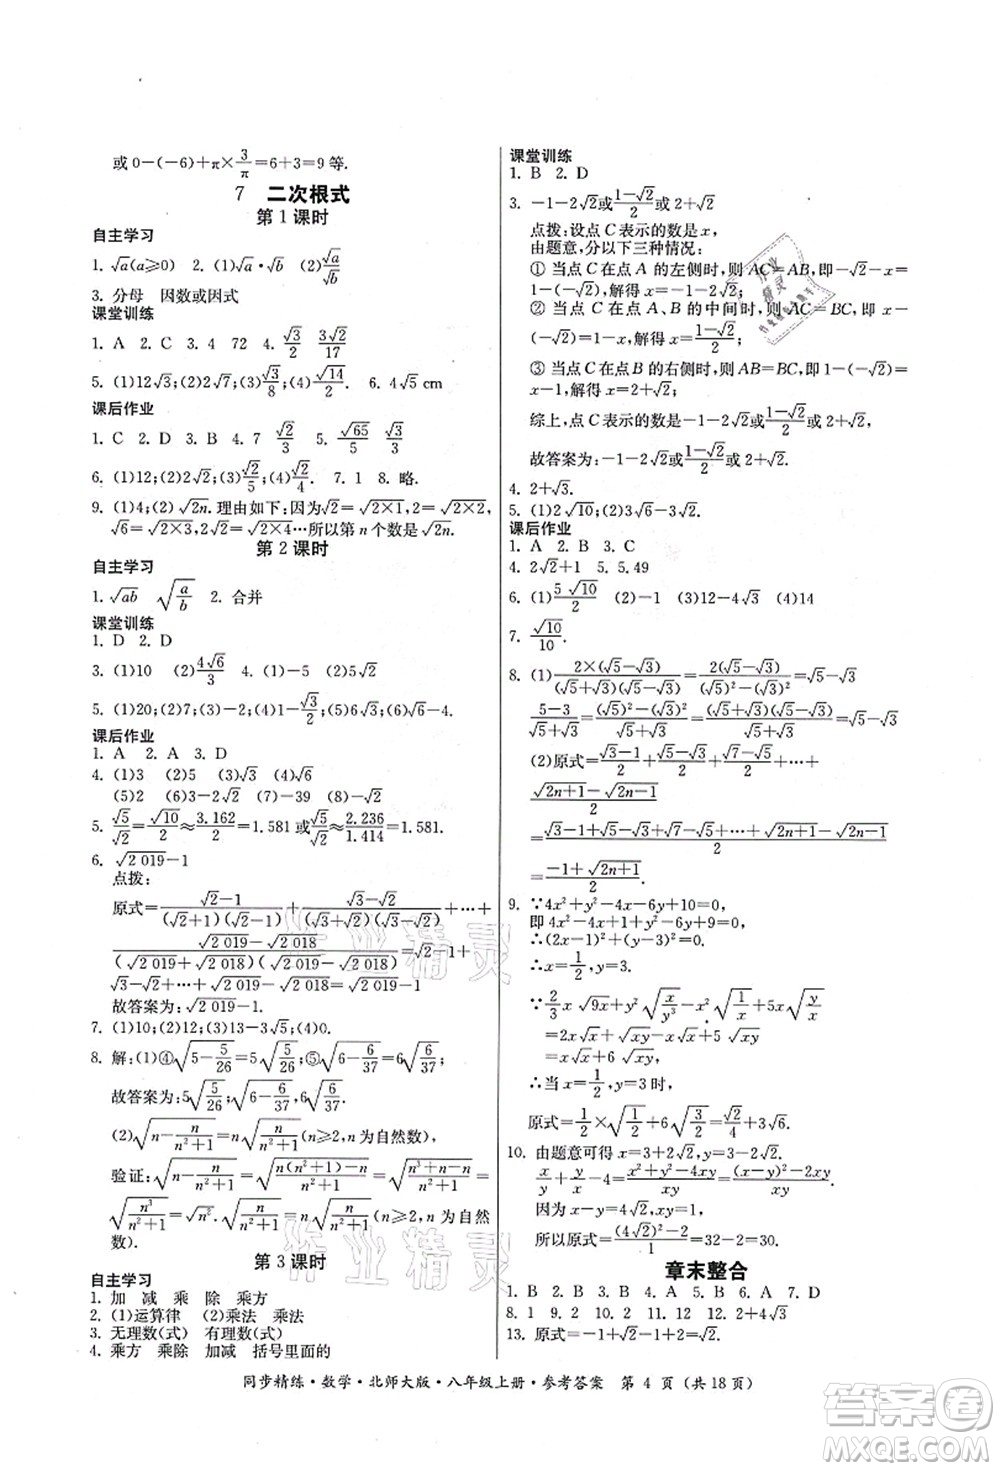 或0-(-6)+π×3/π=6+3=9等.
7 二次根式
第1课时
自主学习
1. √a(a≥0) 2. (1)√a·√b (2)√a/√b
3. 分母 因数或因式
课堂训练
1. A 2. C 3. 4 72 4. √3/2 √3/17
5. (1)12√3;(2)2√7;(3)√3/8;(4)√14/2. 6. 4√5 cm
课后作业
1. C 2. D 3. B 4. 7 √2/3 5. √65/5 √3/3
6. (1)12;(2)2√2;(3)√2/5;(4)√2/4. 7. 1 8. 略.
9. (1)4;(2)√2n. 理由如下:√2=√2×1,2=√2×2,
√6=√2×3,√8=√2×4…所以第n个数是√2n.
第2课时
自主学习
1. √ab √(a/b) 2. 合并
课堂训练
1. D 2. D
3. (1)10 (2)4√6/3 4. (1)0 (2)5√2
5. (1)20;(2)7;(3)-2;(4)1-√3/3;(5)2√6;(6)2-√2.
课后作业
1. A 2. A 3. D
4. (1)3 (2)5 (3)√3 (4)√6
(5)2 (6)3-2√2 (7)0 (8)-√2
5. √5/√2=√10/2≈3.162/2=1.581或√5/√2≈2.236/1.414=1.581.
6. √2 019-1
点拨:
原式=(√2-1)/((√2+1)(√2-1))+(√3-√2)/((√3+√2)(√3-√2))+…+
(√2 019-√2 018)/((√2 019+√2 018)(√2 019-√2 018))=√2-1+
√3-√2+…+√2 019-√2 018=√2 019-1.
故答案为:√2 019-1.
7. (1)10;(2)12;(3)13-3√5;(4)0.
8. 解:(1)④√(5-5/26)=5√(5/26);⑤√(6-6/37)=6√(6/37)
故答案为:5√(5/26),√(6-6/37),6√(6/37)
(2)√(n-n/(n²+1))=n√(n/(n²+1))(n≥2,n为自然数),
验证:√(n-n/(n²+1))=√((n(n²+1)-n)/(n²+1))=
√(n³/(n²+1))=√n²·√(n/(n²+1))=n√(n/(n²+1))(n≥2,n为自然
数).
第3课时
自主学习
1. 加 减 乘 除 乘方
2. (1)运算律 (2)乘法 乘法
3. 无理数(式) 有理数(式)
4. 乘方 乘除 加减 括号里面的
课堂训练
1. B 2. D
3. -1-2√2或(1-√2)/2或2+√2
点拨:设点C表示的数是x,
由题意,分以下三种情况:
①当点C在点A的左侧时,则AC=AB,即-√2-x=
1-(-√2),解得x=-1-2√2;
②当点C在点A、B的中间时,则AC=BC,即x-
(-√2)=1-x,解得x=(1-√2)/2;
③当点C在点B的右侧时,则AB=BC,即1-(-√2)=
x-1,解得x=2+√2.
综上,点C表示的数是-1-2√2或(1-√2)/2或2+√2.
故答案为:-1-2√2或(1-√2)/2或2+√2.
4. 2+√3.
5. (1)2√10;(2)6;(3)1-√3.
课后作业
1. A 2. B 3. C
4. 2√2+1 5. 5.49
6. (1)5√10/2 (2)-1 (3)12-4√3 (4)14
7. √10/10.
8. (1)2×(√5-√3)/((√5+√3)(√5-√3))=2(√5-√3)/((√5)²-(√3)²)=√5-√3
(5-3)/(√5+√3)=((√5)²-(√3)²)/(√5+√3)=(√5+√3)(√5-√3)/(√5+√3)=√5-√3
(2)原式=(√3-1)/2+(√5-√3)/2+(√7-√5)/2+…+
(√2n+1-√2n-1)/2
=(√3-1+√5-√3+√7-√5+…+√2n+1-√2n-1)/2
=(-1+√2n+1)/2.
9. ∵4x²+y²-4x-6y+10=0,
即4x²-4x+1+y²-6y+9=0,
∴(2x-1)²+(y-3)²=0.
∴x=1/2,y=3.
∵2/3x√9x+y²√(x/y³)-x²√(1/x)+5x√(y/x)
=2x√x+√xy-x√x+5√xy
=x√x+6√xy
∴当x=1/2,y=3时,
原式=1/2×√(1/2)+6√(3/2)=√2/4+3√6.
10. 由题意可得x=3+2√2,y=3-2√2.
x/y+y/x-4=(x²+y²-4xy)/xy=((x-y)²-2xy)/xy,
因为x-y=4√2,xy=1,
所以原式=((4√2)²-2)/1=32-2=30.
章末整合
1. B 2. C 3. B 4. A 5. B 6. B 7. D
8. 1 9. 2 10. 2 11. 2 12. 2+4√3
13. 原式=-1+√2-1+2=√2.
同步精练·数学·北师大版·八年级上册·参考答案 第4页(共18页)
作业精灵
作业精灵
答案圈
MXQE.COM